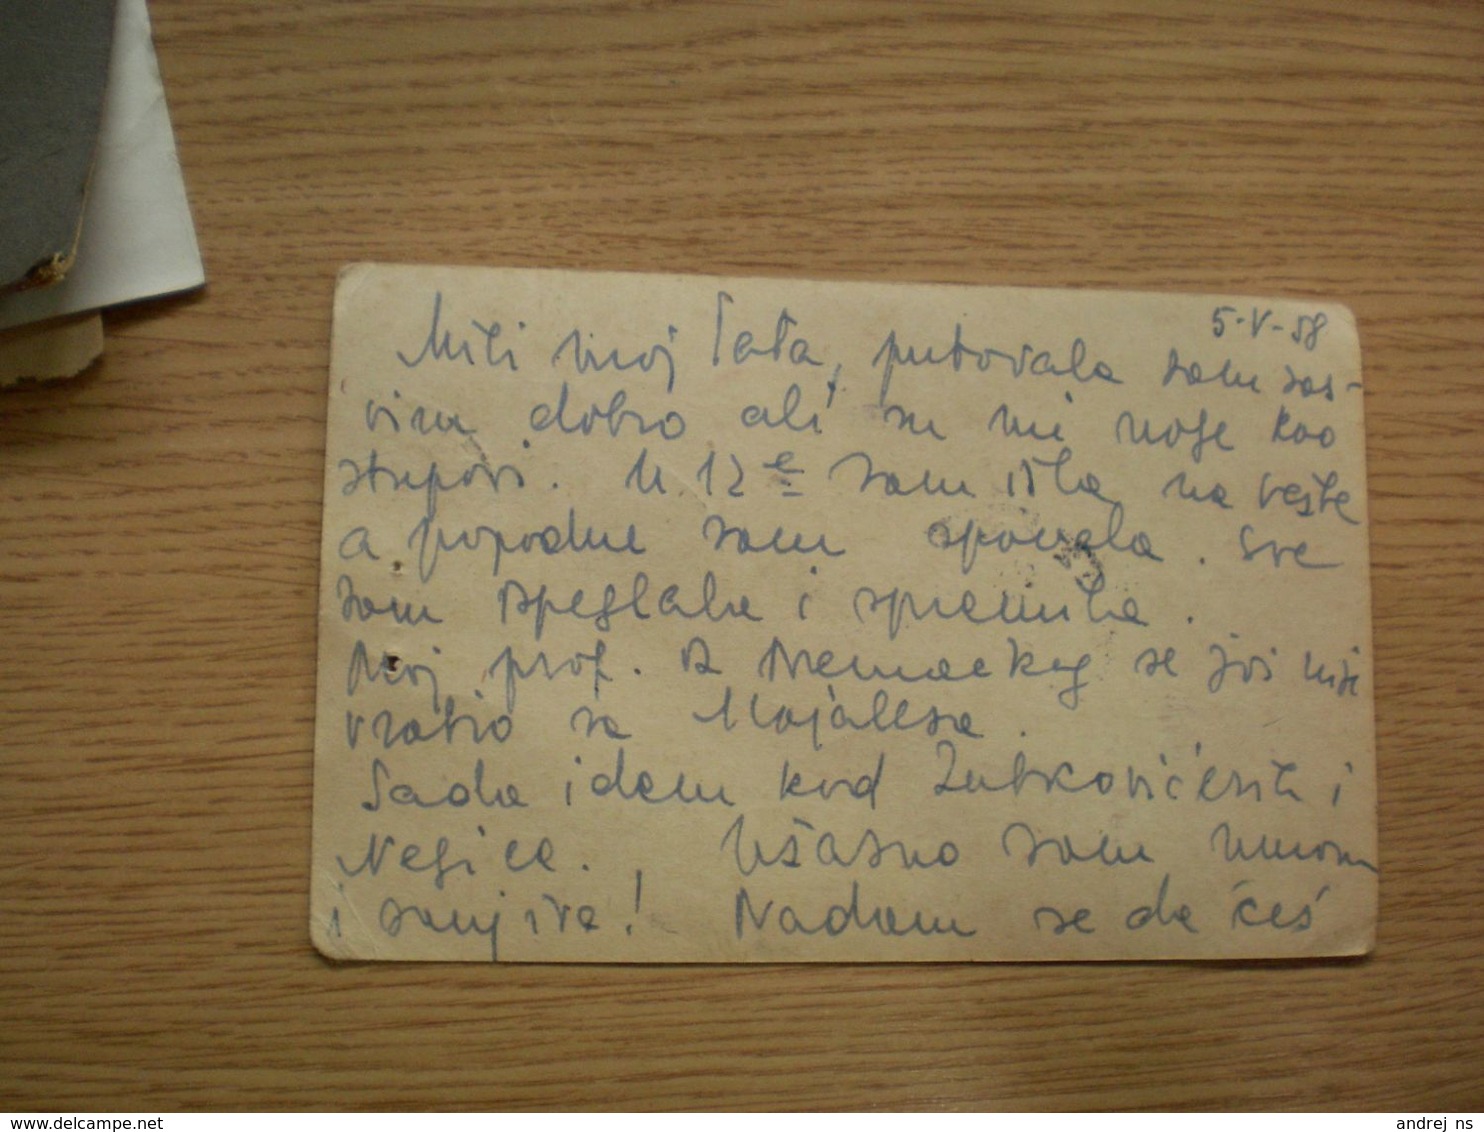 5-V-58
Mili moj Tata, putovala sam sas-
vim dobro ali su mi noge kao
stupovi. U 12 e sam išla na vežbe
a popodne sam spavala. Sve
sam ispeglala i spremila.
Moj prof. iz Nemačkog se još nije
vratio sa Majalesa.
Sada idem kod Zubkovićevih i
Negice. Užasno sam umorna
i sanjiva! Nadam se da ćeš
www.delcampe.net
andrej_ns